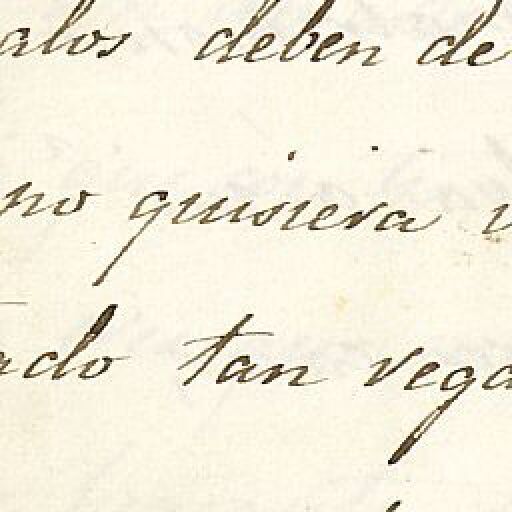 alos deben de
no quisiera v
ado tan vega